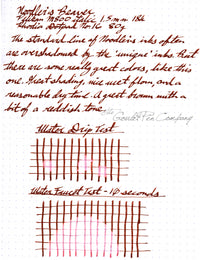 Noodler's Beaver
Pelikan M800 Italic 1.5mm 18k
Rhodia Dotpad No. 16 80g
The standard line of Noodler's inks often
are overshadowed by the "unique" inks. But
there are some really great colors, like this
one. Great shading, nice wet flow, and a
reasonable dry time. A great brown with a
bit of a reddish tone.
The Goulet Pen Company
Water Drip Test
Water Faucet Test - 10 seconds